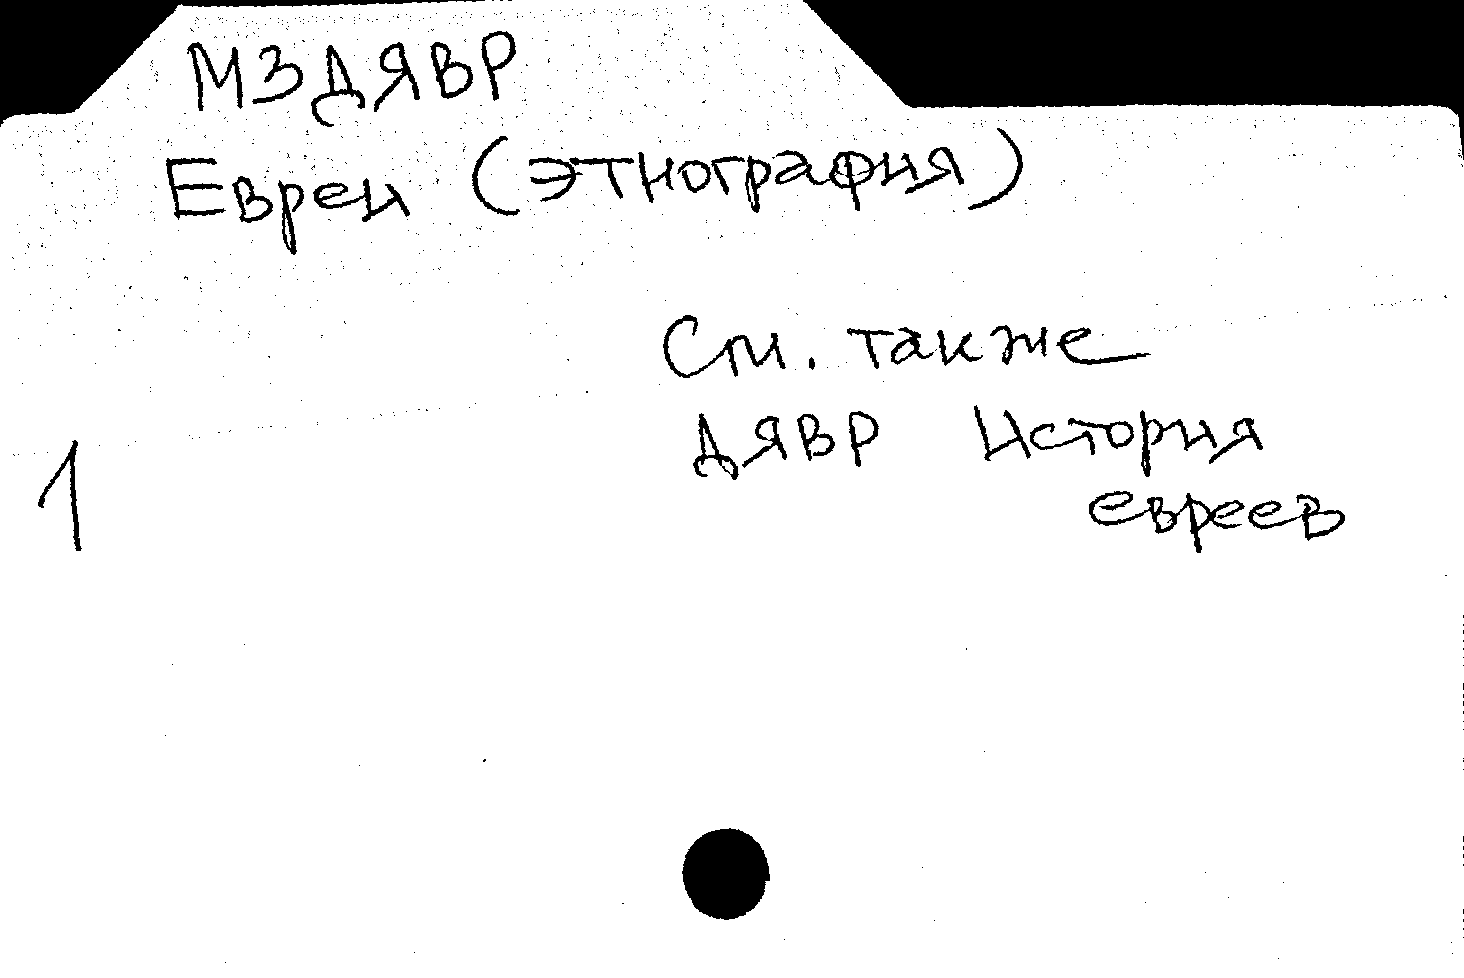 МЗДЯВР
Евреи (этнография)
См. также
ДЯВР История
евреев
1